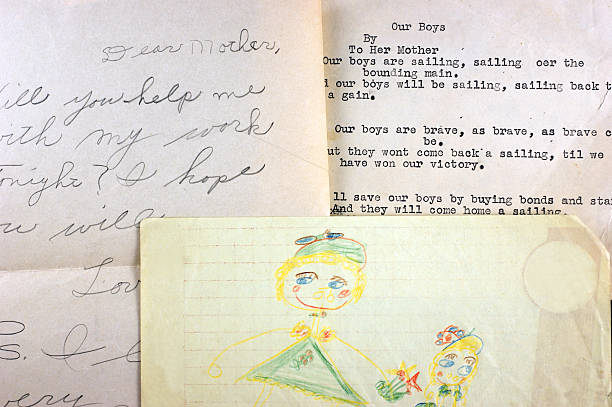 Dear Mother,
Will you help me
with my work
tonight? I hope
you will
Lov
S. I
very
Our Boys
By
To Her Mother
Our boys are sailing, sailing oer the
bounding main.
d our boys will be sailing, sailing back t
a gain.
Our boys are brave, as brave, as brave c
be.
ut they wont come back a sailing, til we
have won our victory.
ll save our boys by buying bonds and sta
And they will come home a sailing.